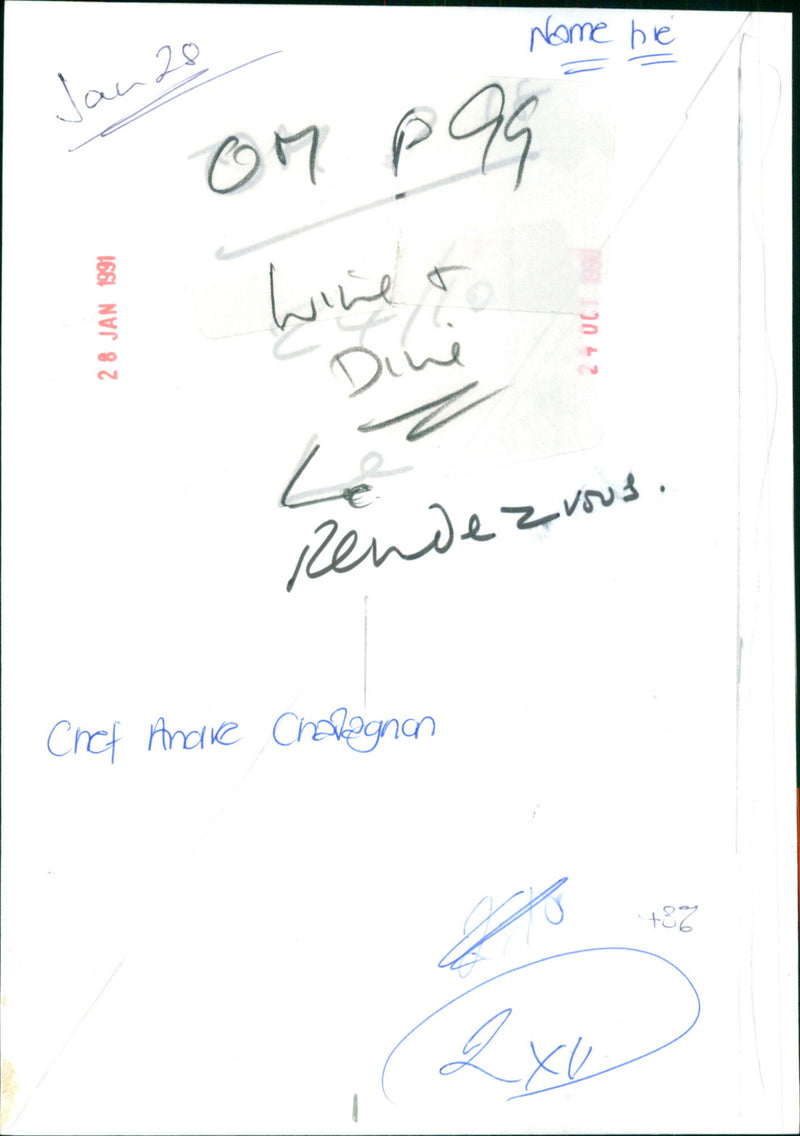 Jan 28
Name pie
OM P99
28 JAN 1991
Wine +
24 OCT 1990
Dine
Le
Rendezvous.
Chef Andre
+36
2 x